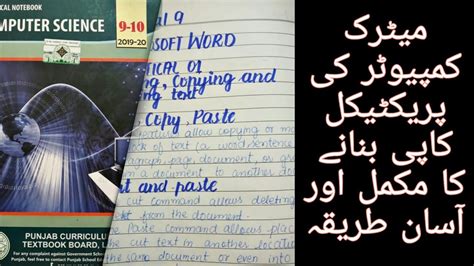 CAL NOTEBOOK
MPUTER SCIENCE 9-10
2019-20
PUNJAB CURRICULUM
TEXTBOOK BOARD, L
For any complaint against Government School
al 9
SOFT WORD
TICAL 01
Copying and
ng text
Copy, Paste
allow copying or mo
ock of text (a word sentence
agraph page, document, or
in a document to another do
t and paste
cut command allows deleting
from the document.
e Paste command allows pla
he cut text in another locat
same document or even into
میٹرک
کمپیوٹر کی
پریکٹیکل
کاپی بنانے
کا مکمل اور
آسان طریقہ